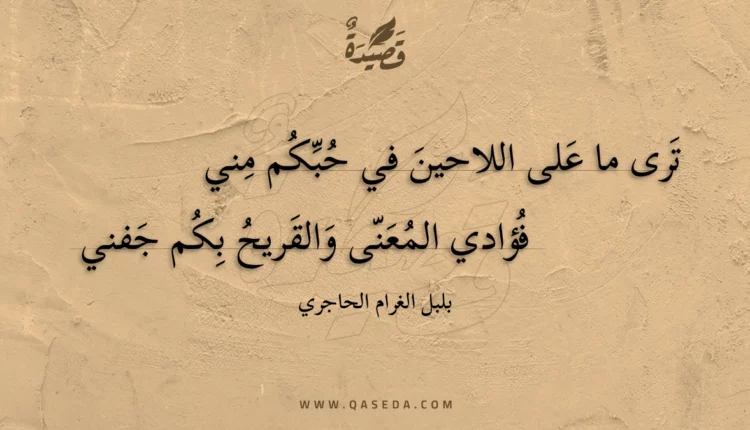 قَصِيدَةٌ
تَرى ما عَلى اللاحينَ في حُبِّكُم مِني
فُؤادي المُعَنّى وَالقَريحُ بِكُم جَفني
بلبل الغرام الحاجري
WWW.QASEDA.COM